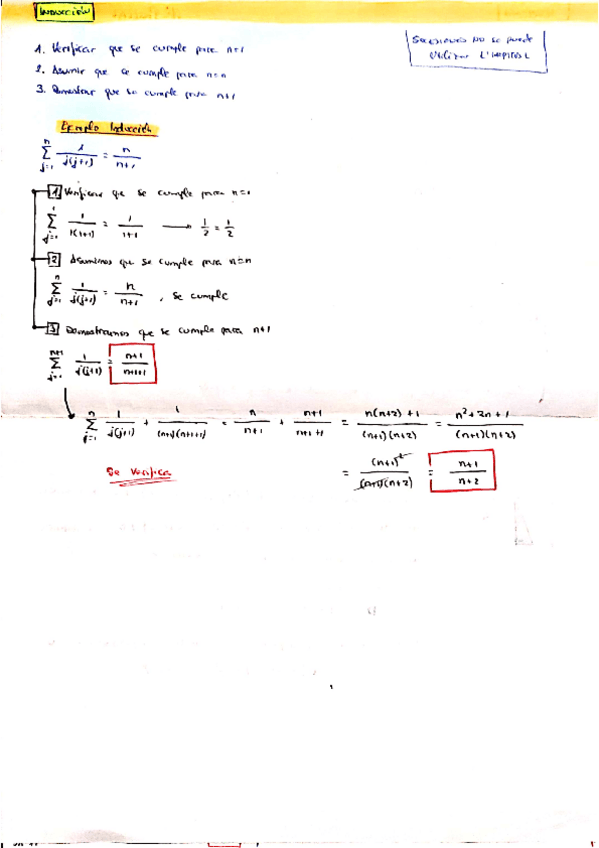 INDUCCIÓN
1. Verificar que se cumple para n=1
2. Asumir que se cumple para n=n
3. Demostrar que se cumple para n+1
SUCESIONES NO SE PUEDE
UTILIZAR L'HOPITAL
Ejemplo Inducción
∑_{j=1}^{n} 1/(j(j+1)) = n/(n+1)
1 Verificar que se cumple para n=1
∑_{j=1}^{1} 1/(1(1+1)) = 1/(1+1) → 1/2 = 1/2
2 Asumimos que se cumple para n=n
∑_{j=1}^{n} 1/(j(j+1)) = n/(n+1), se cumple
3 Demostramos que se cumple para n+1
∑_{j=1}^{n+1} 1/(j(j+1)) = (n+1)/(n+1+1)
∑_{j=1}^{n} 1/(j(j+1)) + 1/((n+1)(n+1+1)) = n/(n+1) + (n+1)/(n+1+1) = (n(n+2)+1)/((n+1)(n+2)) = (n²+2n+1)/((n+1)(n+2))
= (n+1)²/((n+1)(n+2)) = (n+1)/(n+2)
Se Verifica